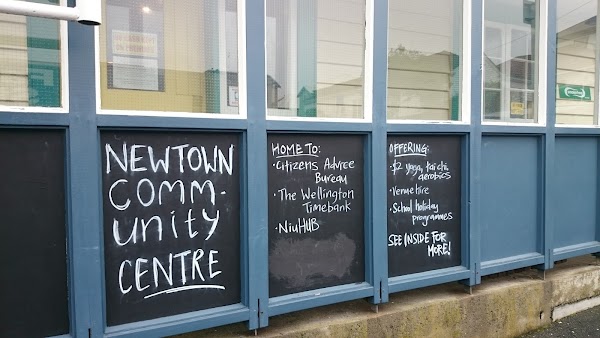 NEWTOWN
COMM-
UNITY
CENTRE
HOME TO:
• Citizens Advice
Bureau
• The Wellington
Timebank
• NiuHUB
OFFERING:
• $2 yoga, tai chi,
aerobics
• Venue hire
• School holiday
programmes
SEE INSIDE FOR
MORE!